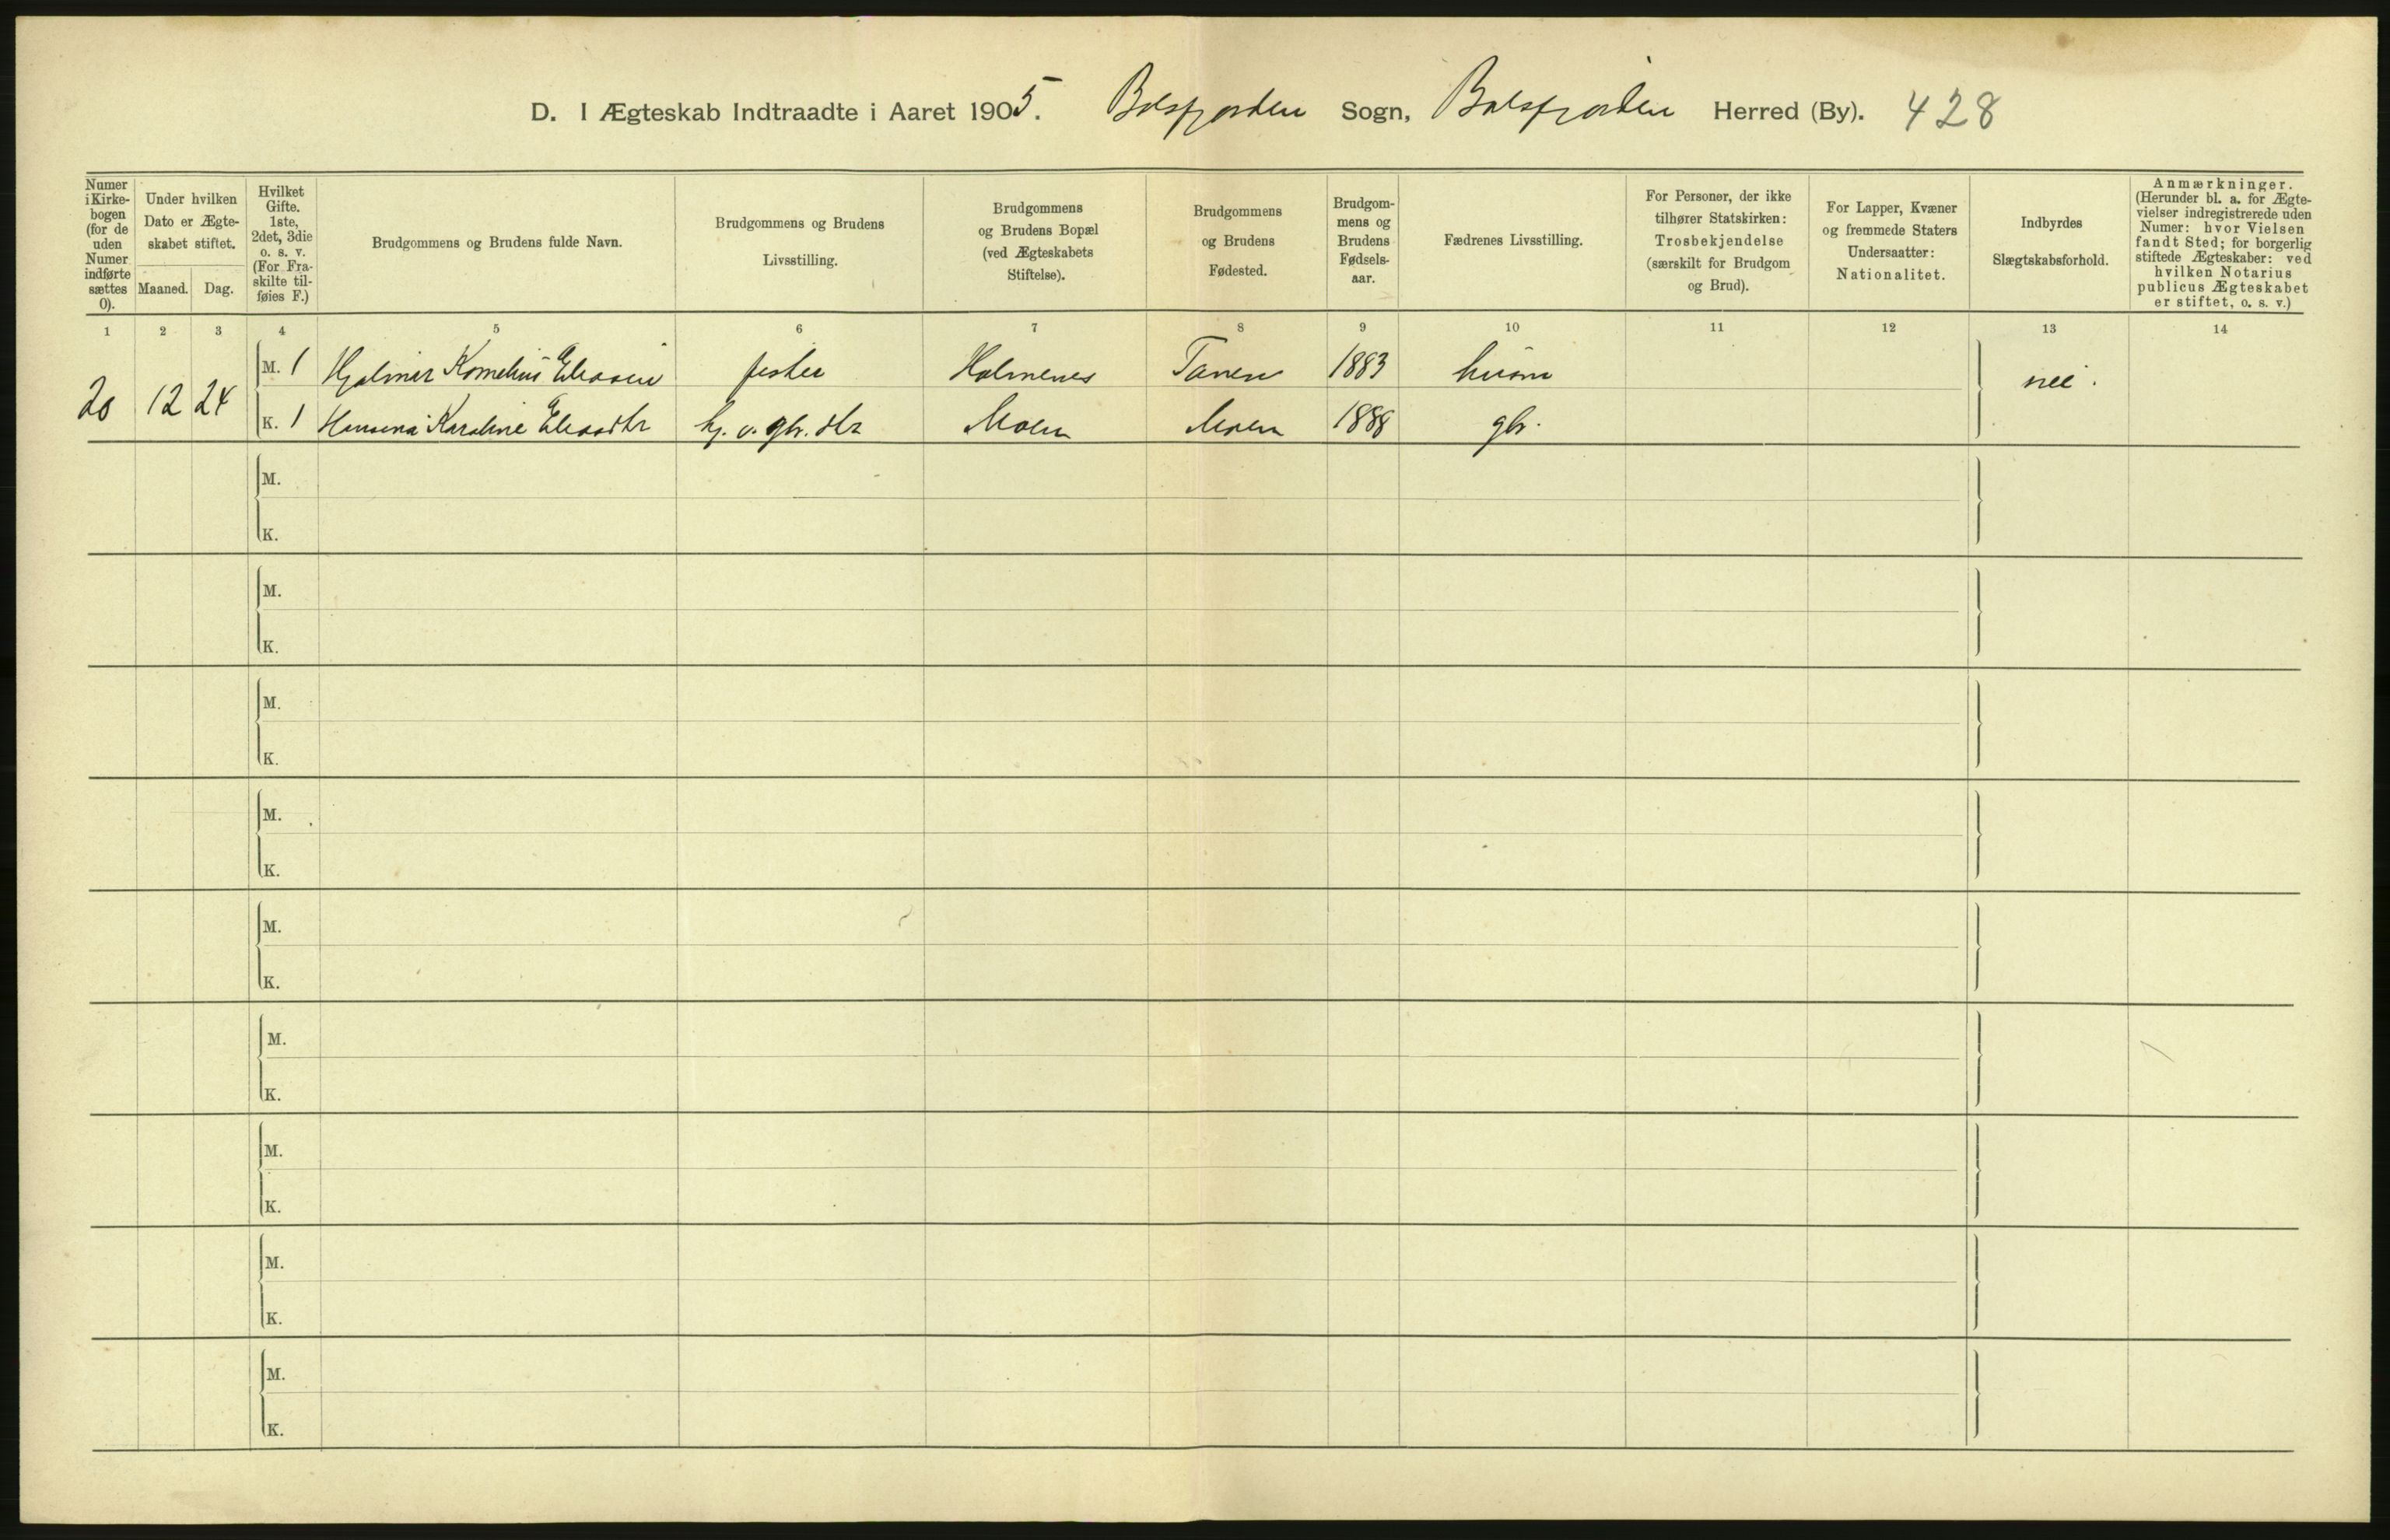 D. I Ægteskab Indtraadte i Aaret 1905. Balsfjorden Sogn, Balsfjorden Herred (By). 428
Numer i Kirke-bogen (for de uden Numer indførte sættes 0).
Under hvilken Dato er Ægte-skabet stiftet.
Maaned. Dag.
Hvilket Gifte. 1ste, 2det, 3die o. s. v. (For Fra-skilte til-føies F.)
Brudgommens og Brudens fulde Navn.
Brudgommens og Brudens Livsstilling.
Brudgommens og Brudens Bopæl (ved Ægteskabets Stiftelse).
Brudgommens og Brudens Fødested.
Brudgom-mens og Brudens Fødsels-aar.
Fædrenes Livsstilling.
For Personer, der ikke tilhører Statskirken: Trosbekjendelse (særskilt for Brudgom og Brud).
For Lapper, Kvæner og fremmede Staters Undersaatter: Nationalitet.
Indbyrdes Slægtskabsforhold.
Anmærkninger. (Herunder bl. a. for Ægte-vielser indregistrerede uden Numer: hvor Vielsen fandt Sted; for borgerlig stiftede Ægteskaber: ved hvilken Notarius publicus Ægteskabet er stiftet, o. s. v.)
1 2 3 4 5 6 7 8 9 10 11 12 13 14
20 12 24
M. 1 Hjalmar Kornelius Eliasen fisker Holmenes Tanen 1883 husm nei.
K. 1 Hansena Karoline Eliasdtr hj. v. gbr. dtr Moen Moen 1888 gbr.
M.
K.
M.
K.
M.
K.
M.
K.
M.
K.
M.
K.
M.
K.
M.
K.
M.
K.